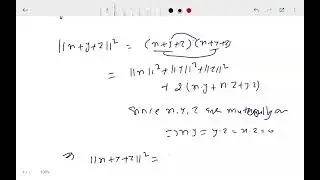 ||x+y+z||² = (x+y+z)(x+y+z)
= ||x||²+||y||²+||z||²
+ 2(x.y+x.z+y.z)
Since x,y,z are mutually or
=> x.y = y.z = x.z = 0
=> ||x+y+z||² =